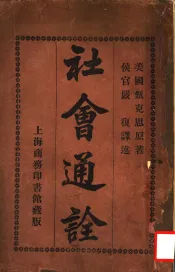 美國甄克思原著
侯官嚴復譯述
社會通詮
上海商務印書館藏版